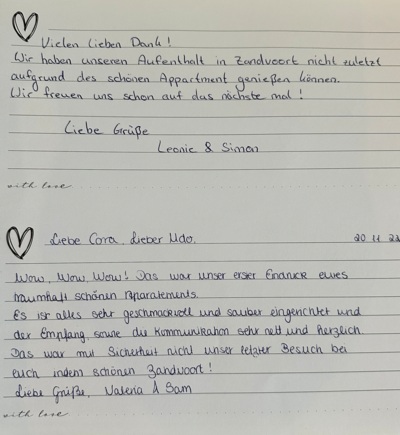 Vielen lieben Dank!
Wir haben unseren Aufenthalt in Zandvoort nicht zuletzt
aufgrund des schönen Appartment genießen können.
Wir freuen uns schon auf das nächste mal!
Liebe Grüße
Leonie & Simon
with love
Liebe Cora, Lieber Udo.
20 11 23
Wow, Wow, Wow! Das war unser erster
traumhaft schönen Apparatements.
Es ist alles sehr geschmackvoll und sauber eingerichtet und
der Empfang, sowie die Kommunikation sehr nett und herzlich
Das war mit Sicherheit nicht unser letzter Besuch bei
euch indem schönen Zandvoort!
Liebe Grüße, Valeria & Sam
with love